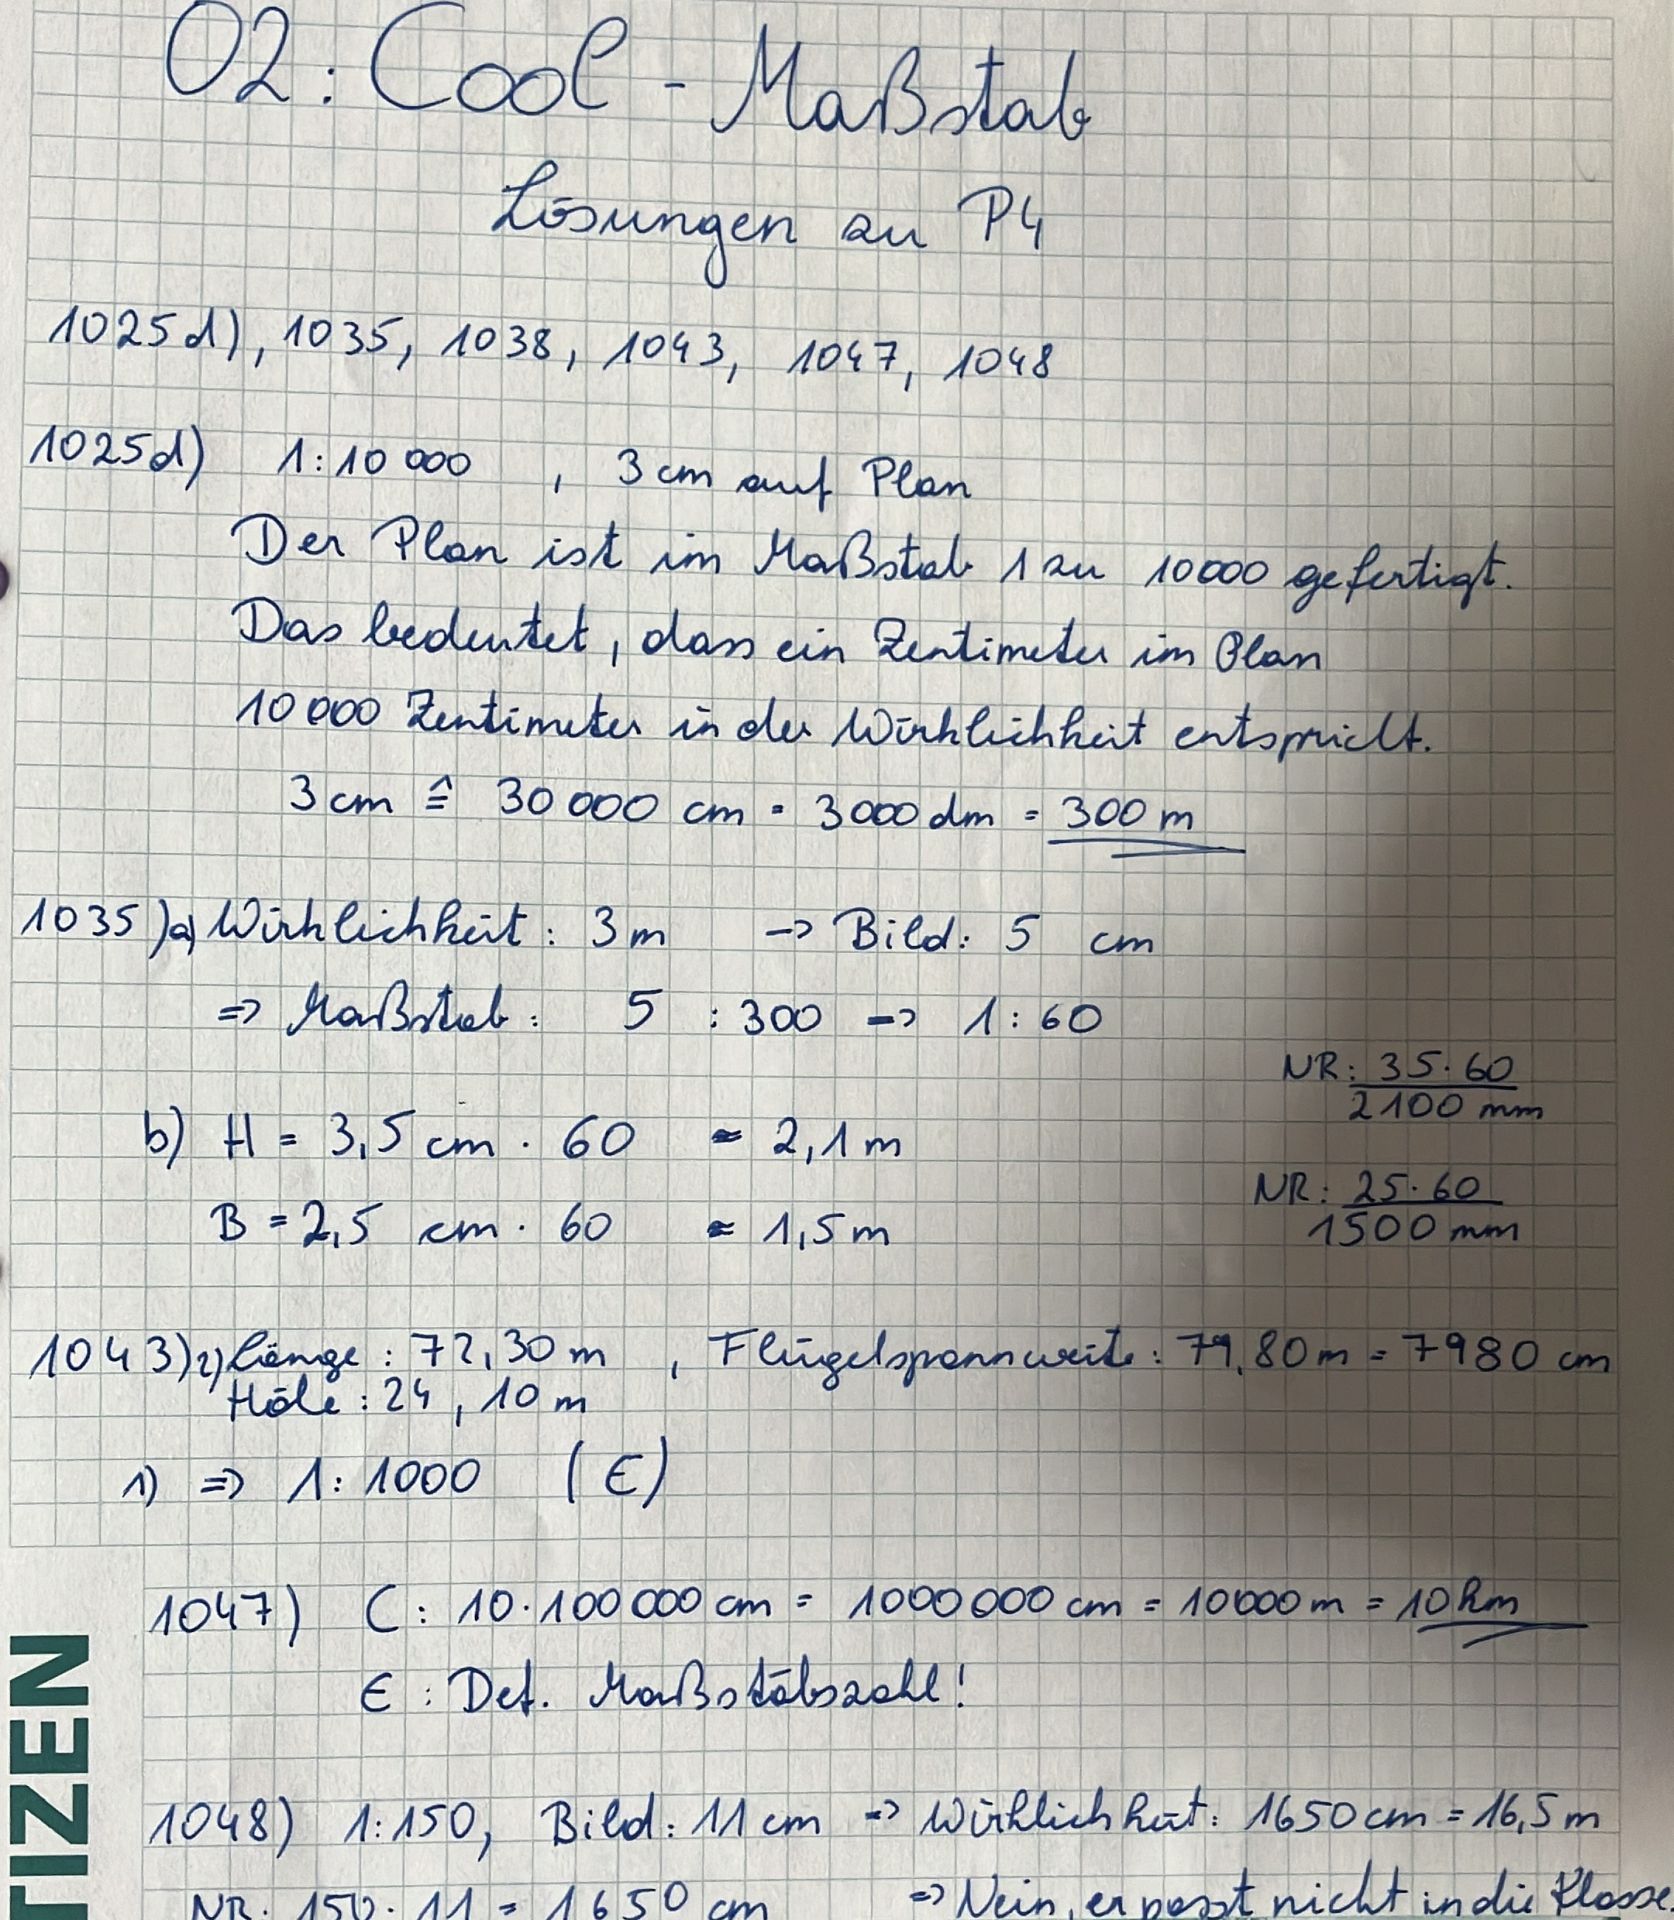 02: Cool - Maßstab
Lösungen zu P4
1025d), 1035, 1038, 1043, 1047, 1048
1025d) 1:10 000 , 3 cm auf Plan
Der Plan ist im Maßstab 1 zu 10000 gefertigt.
Das bedeutet, dass ein Zentimeter im Plan
10 000 Zentimeter in der Wirklichkeit entspricht.
3 cm ≙ 30 000 cm = 3000 dm = 300 m
1035)a) Wirklichkeit: 3 m -> Bild: 5 cm
=> Maßstab: 5 : 300 -> 1 : 60
NR: 35·60
2100 mm
b) H = 3,5 cm · 60 = 2,1 m
NR: 25·60
1500 mm
B = 2,5 cm · 60 = 1,5 m
1043)2) Länge: 72,30 m , Flügelspannweite: 79,80 m = 7980 cm
Höhe: 24,10 m
1) => 1:1000 (E)
1047) C: 10·100 000 cm = 1000 000 cm = 10000 m = 10 km
E: Def. Maßstabszahl!
1048) 1:150, Bild: 11 cm => Wirklichkeit: 1650 cm = 16,5 m
NR: 150·11 = 1650 cm => Nein, er passt nicht in die Klasse.
TIZEN